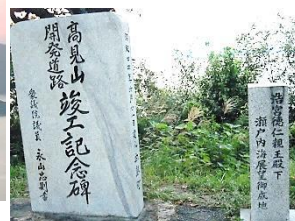 高見山
開発道路
竣工記念碑
衆議院議員
永山忠則書
浩宮徳仁親王殿下
瀬戸内海展望御座地